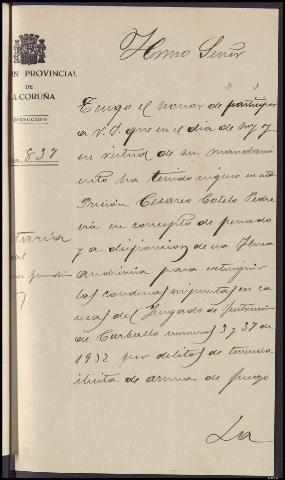 Ilmo Señor
ON PROVINCIAL
DE
LA CORUÑA
DIRECCION
Núm. 837
Tengo el honor de participar
a V.S. que en el dia de hoy y
en virtud de su mandami
ento ha tenido ingreso en esta
Prisión Cesareo Cotelo Pedre
ira en concepto de penado
y a disposicion de esa Ilma
audiencia para extinguir
las condenas impuestas en cau
sas del Juzgado de Instrucción
de Carballo numeros 3 y 37 de
1932 por delitos de tenencia
ilicita de arma de fuego
La